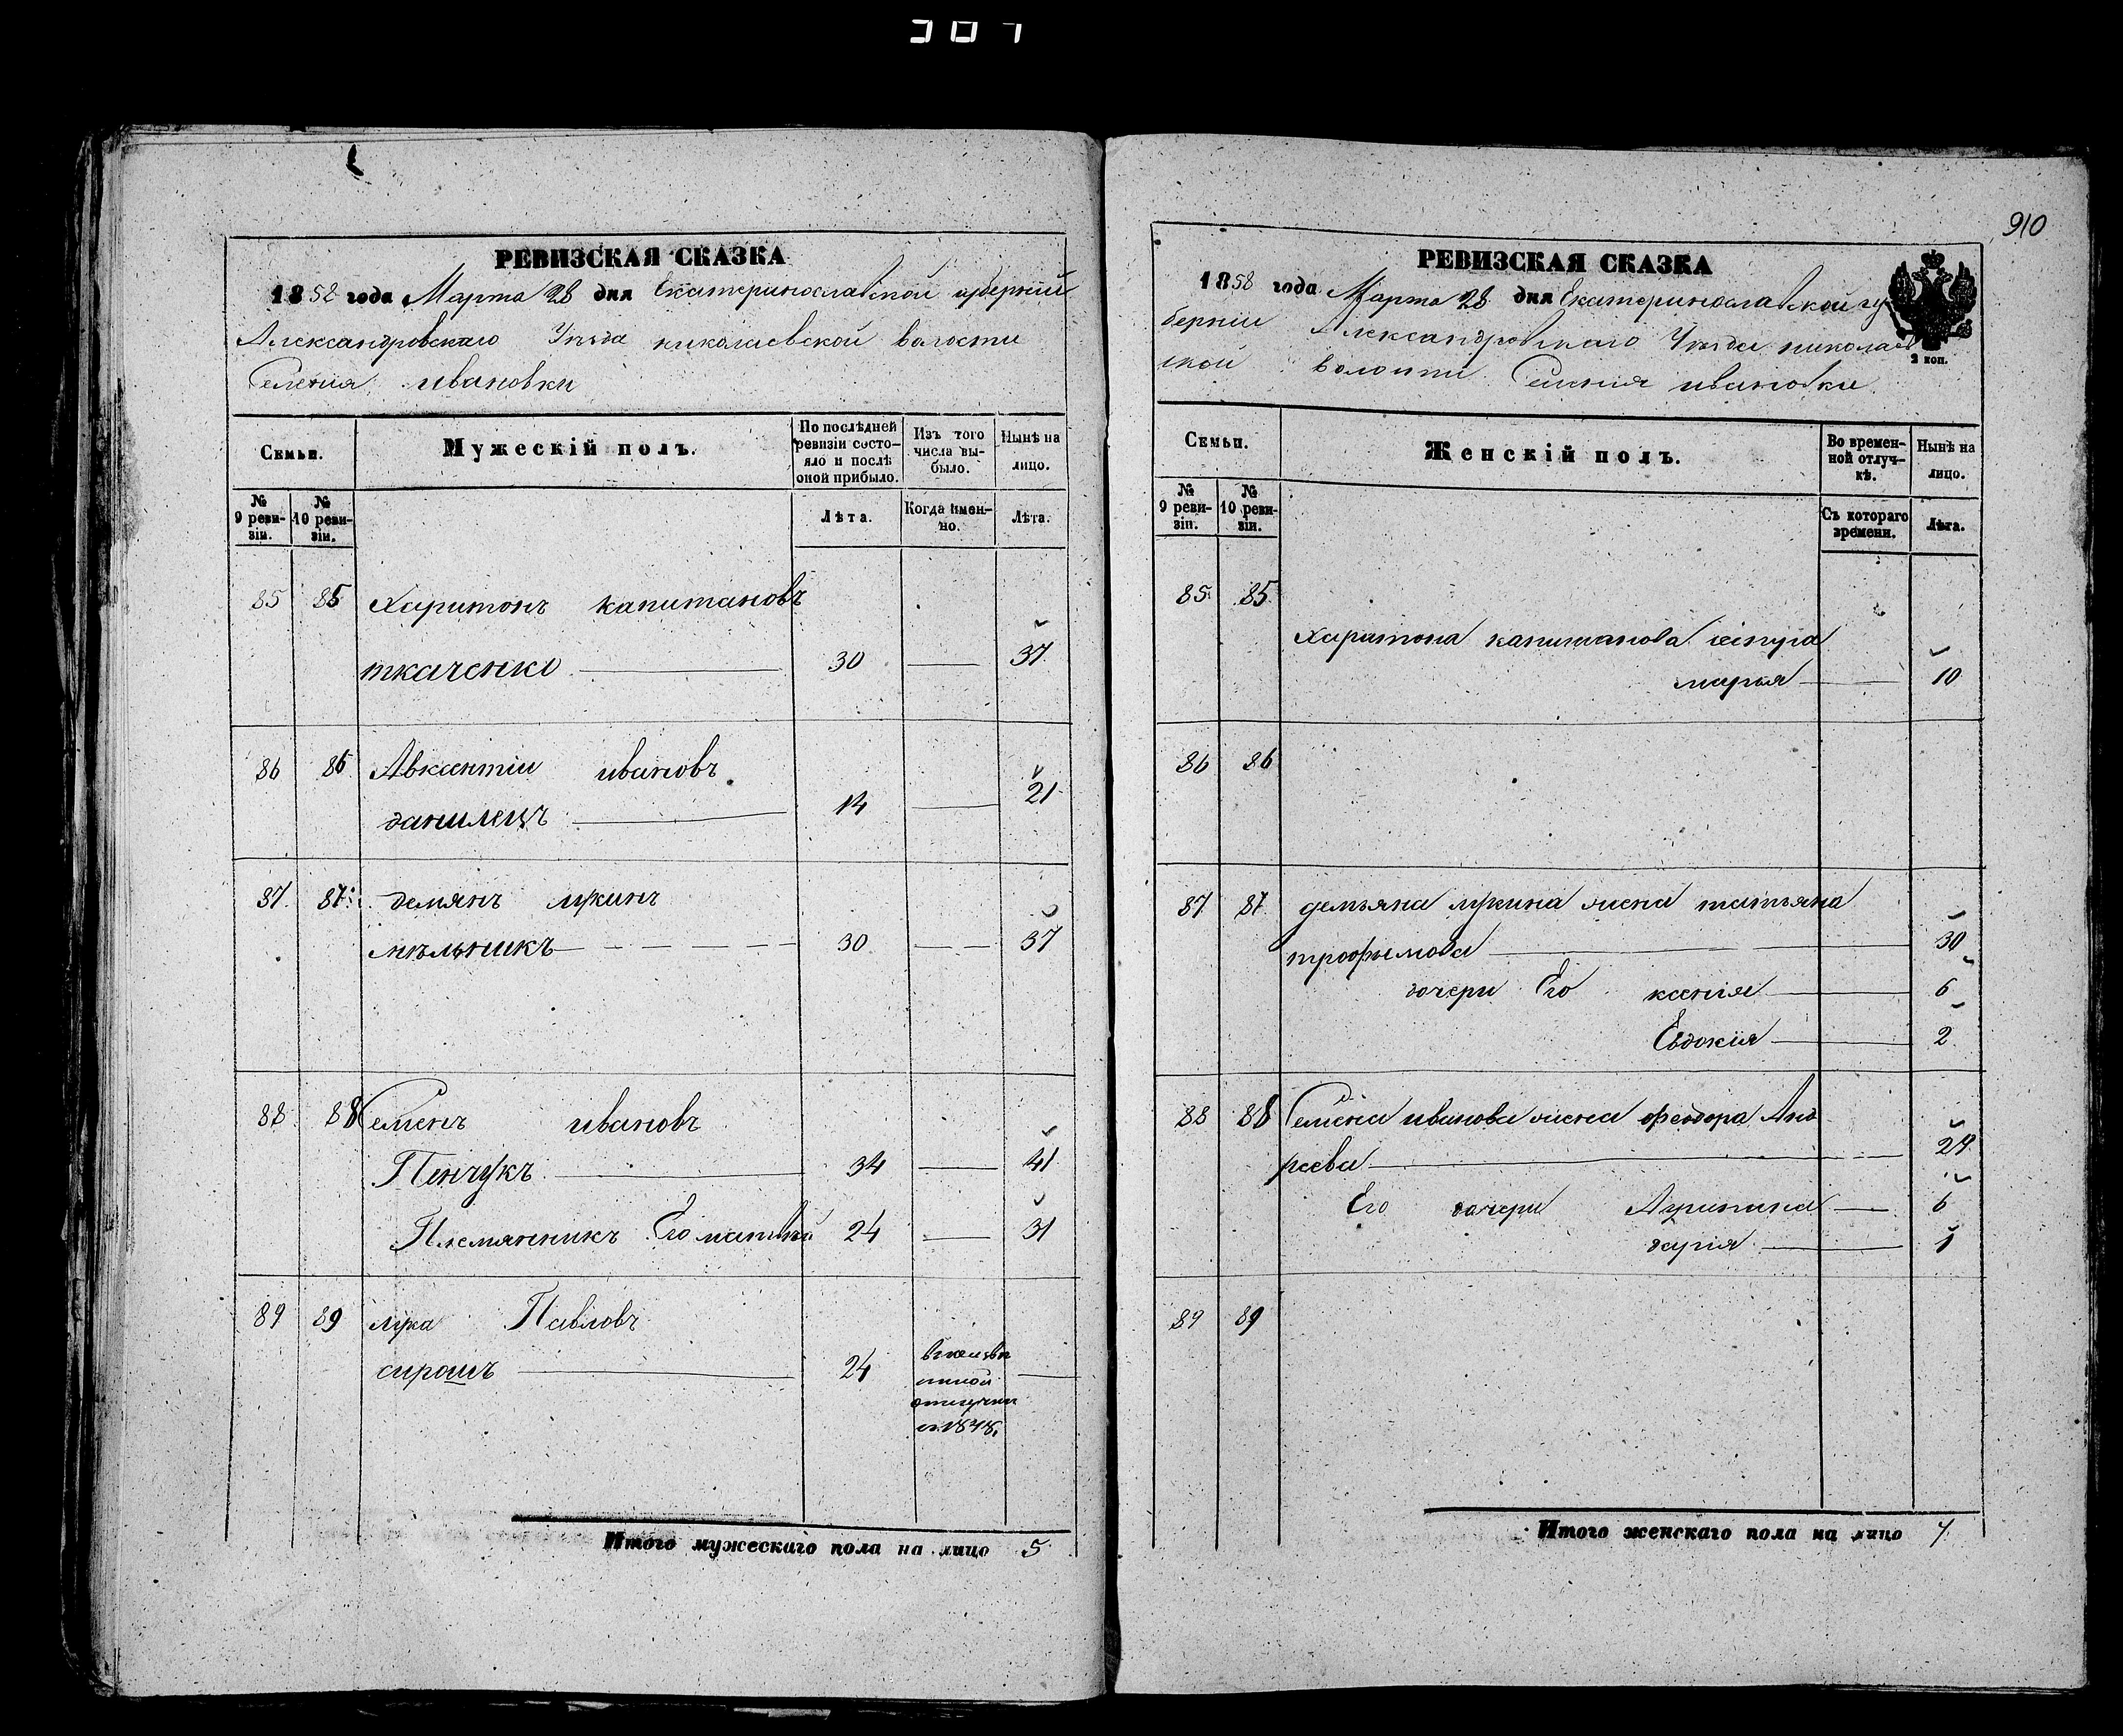 307
РЕВИЗСКАЯ СКАЗКА
1858 года Марта 28 дня Екатеринославской губернiи
Александровскаго Уѣзда николаевской волости
Селенiя ивановки
Семьи.
Мужескiй полъ.
По послѣдней ревизiи состояло и послѣ оной прибыло.
Изъ того числа выбыло.
Нынѣ на лицо.
№ 9 ревизiи.
№ 10 ревизiи.
Лѣта.
Когда именно.
Лѣта.
85 85 Харитонъ капитановъ
ткаченко 30 37
86 86 Авксентiи ивановъ
данилецъ 14 21
87 87 демянъ лукинъ
мѣльникъ 30 37
88 88 Семенъ ивановъ
Пенчукъ 34 41
Племянникъ Его матвѣй 24 31
89 89 лука Павловъ
сирошъ 24
отлучки
Итого мужескаго пола на лицо 5
910
РЕВИЗСКАЯ СКАЗКА
1858 года Марта 28 дня Екатеринославской гу
бернiи Александровскаго Уѣзда николаев
ской волости Селенiя ивановки
2 коп.
Семьи.
Женскiй полъ.
Во временной отлучкѣ.
Нынѣ на лицо.
№ 9 ревизiи.
№ 10 ревизiи.
Съ котораго времени.
Лѣта.
85 85
Харитона капитанова
марья 10
86 86
87 87 демьяна лукина жена татьяна
трофимова 30
дочери Его ксенiя 6
Евдокiя 2
88 88 Семена иванова жена феодора Анд
реева 29
Его дочери Агрипина 6
дарiя 1
89 89
Итого женскаго пола на лицо 7